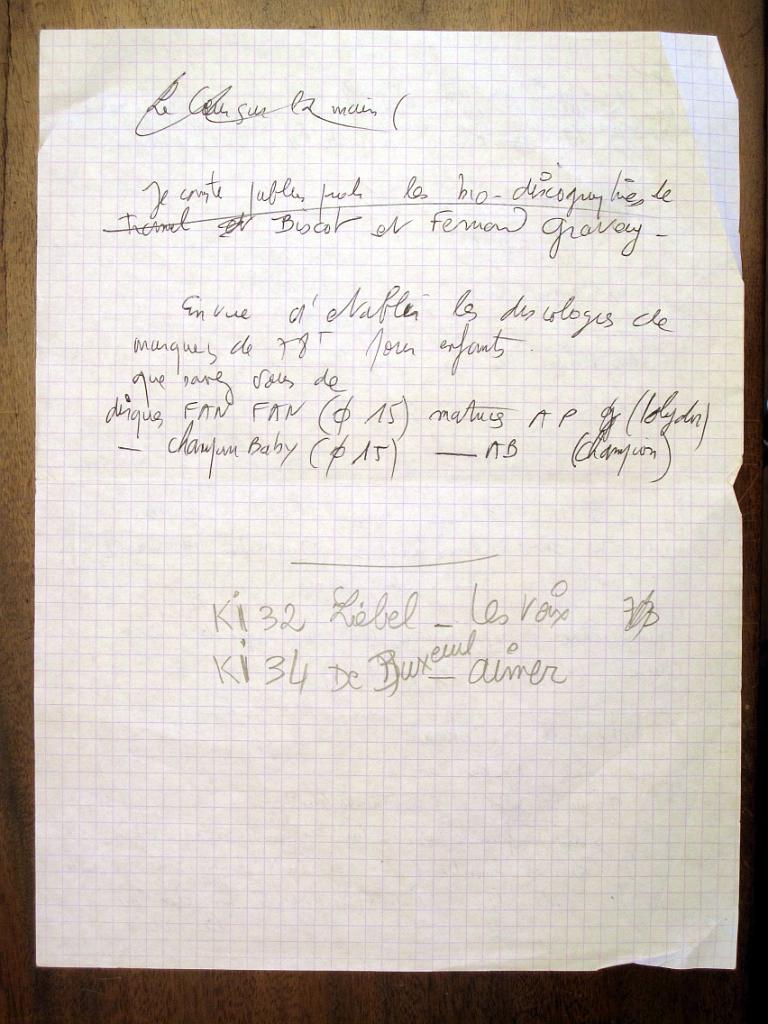 Le Cœur sur la main (
Je compte publier les bio-discographies de
Tramel et Biscot et Fernand Gravey -
En vue d'établir les discologies de
marques de 78T pour enfants.
que savez vous de
disques FAN FAN (ϕ 15) matrices AP (Polydor)
— Champion Baby (ϕ 15) — AB (Champion)
Ki 32 Liébel - Les Voix
Ki 34 De Buxeuil - aimer